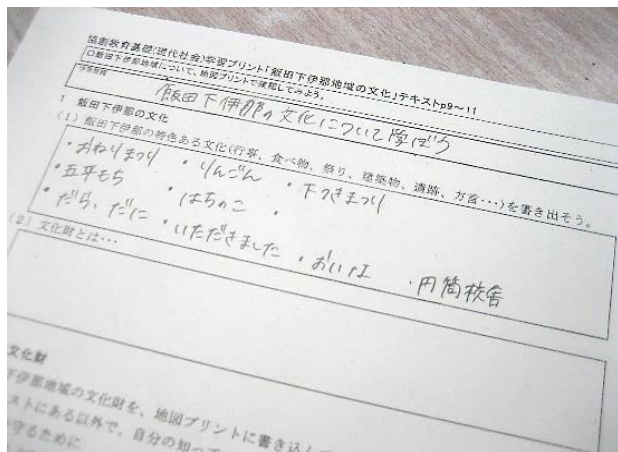 協創教育基礎(現代社会)学習プリント「飯田下伊那地域の文化」テキストp9～11
○飯田下伊那地域について、地図プリントで確認してみよう。
学習課題
飯田下伊那の文化について学ぼう
1 飯田下伊那の文化
(1) 飯田下伊那の特色ある文化(行事、食べ物、祭り、建築物、遺跡、方言・・・)を書き出そう。
・おねりまつり ・りんごん ・下つきまつり
・五平もち ・はちのこ ・
・だら、だに ・いただきました ・おいナエ ・円筒校舎
(2) 文化財とは・・・
文化財
下伊那地域の文化財を、地図プリントに書き込んで
ストにある以外で、自分の知って
守るために